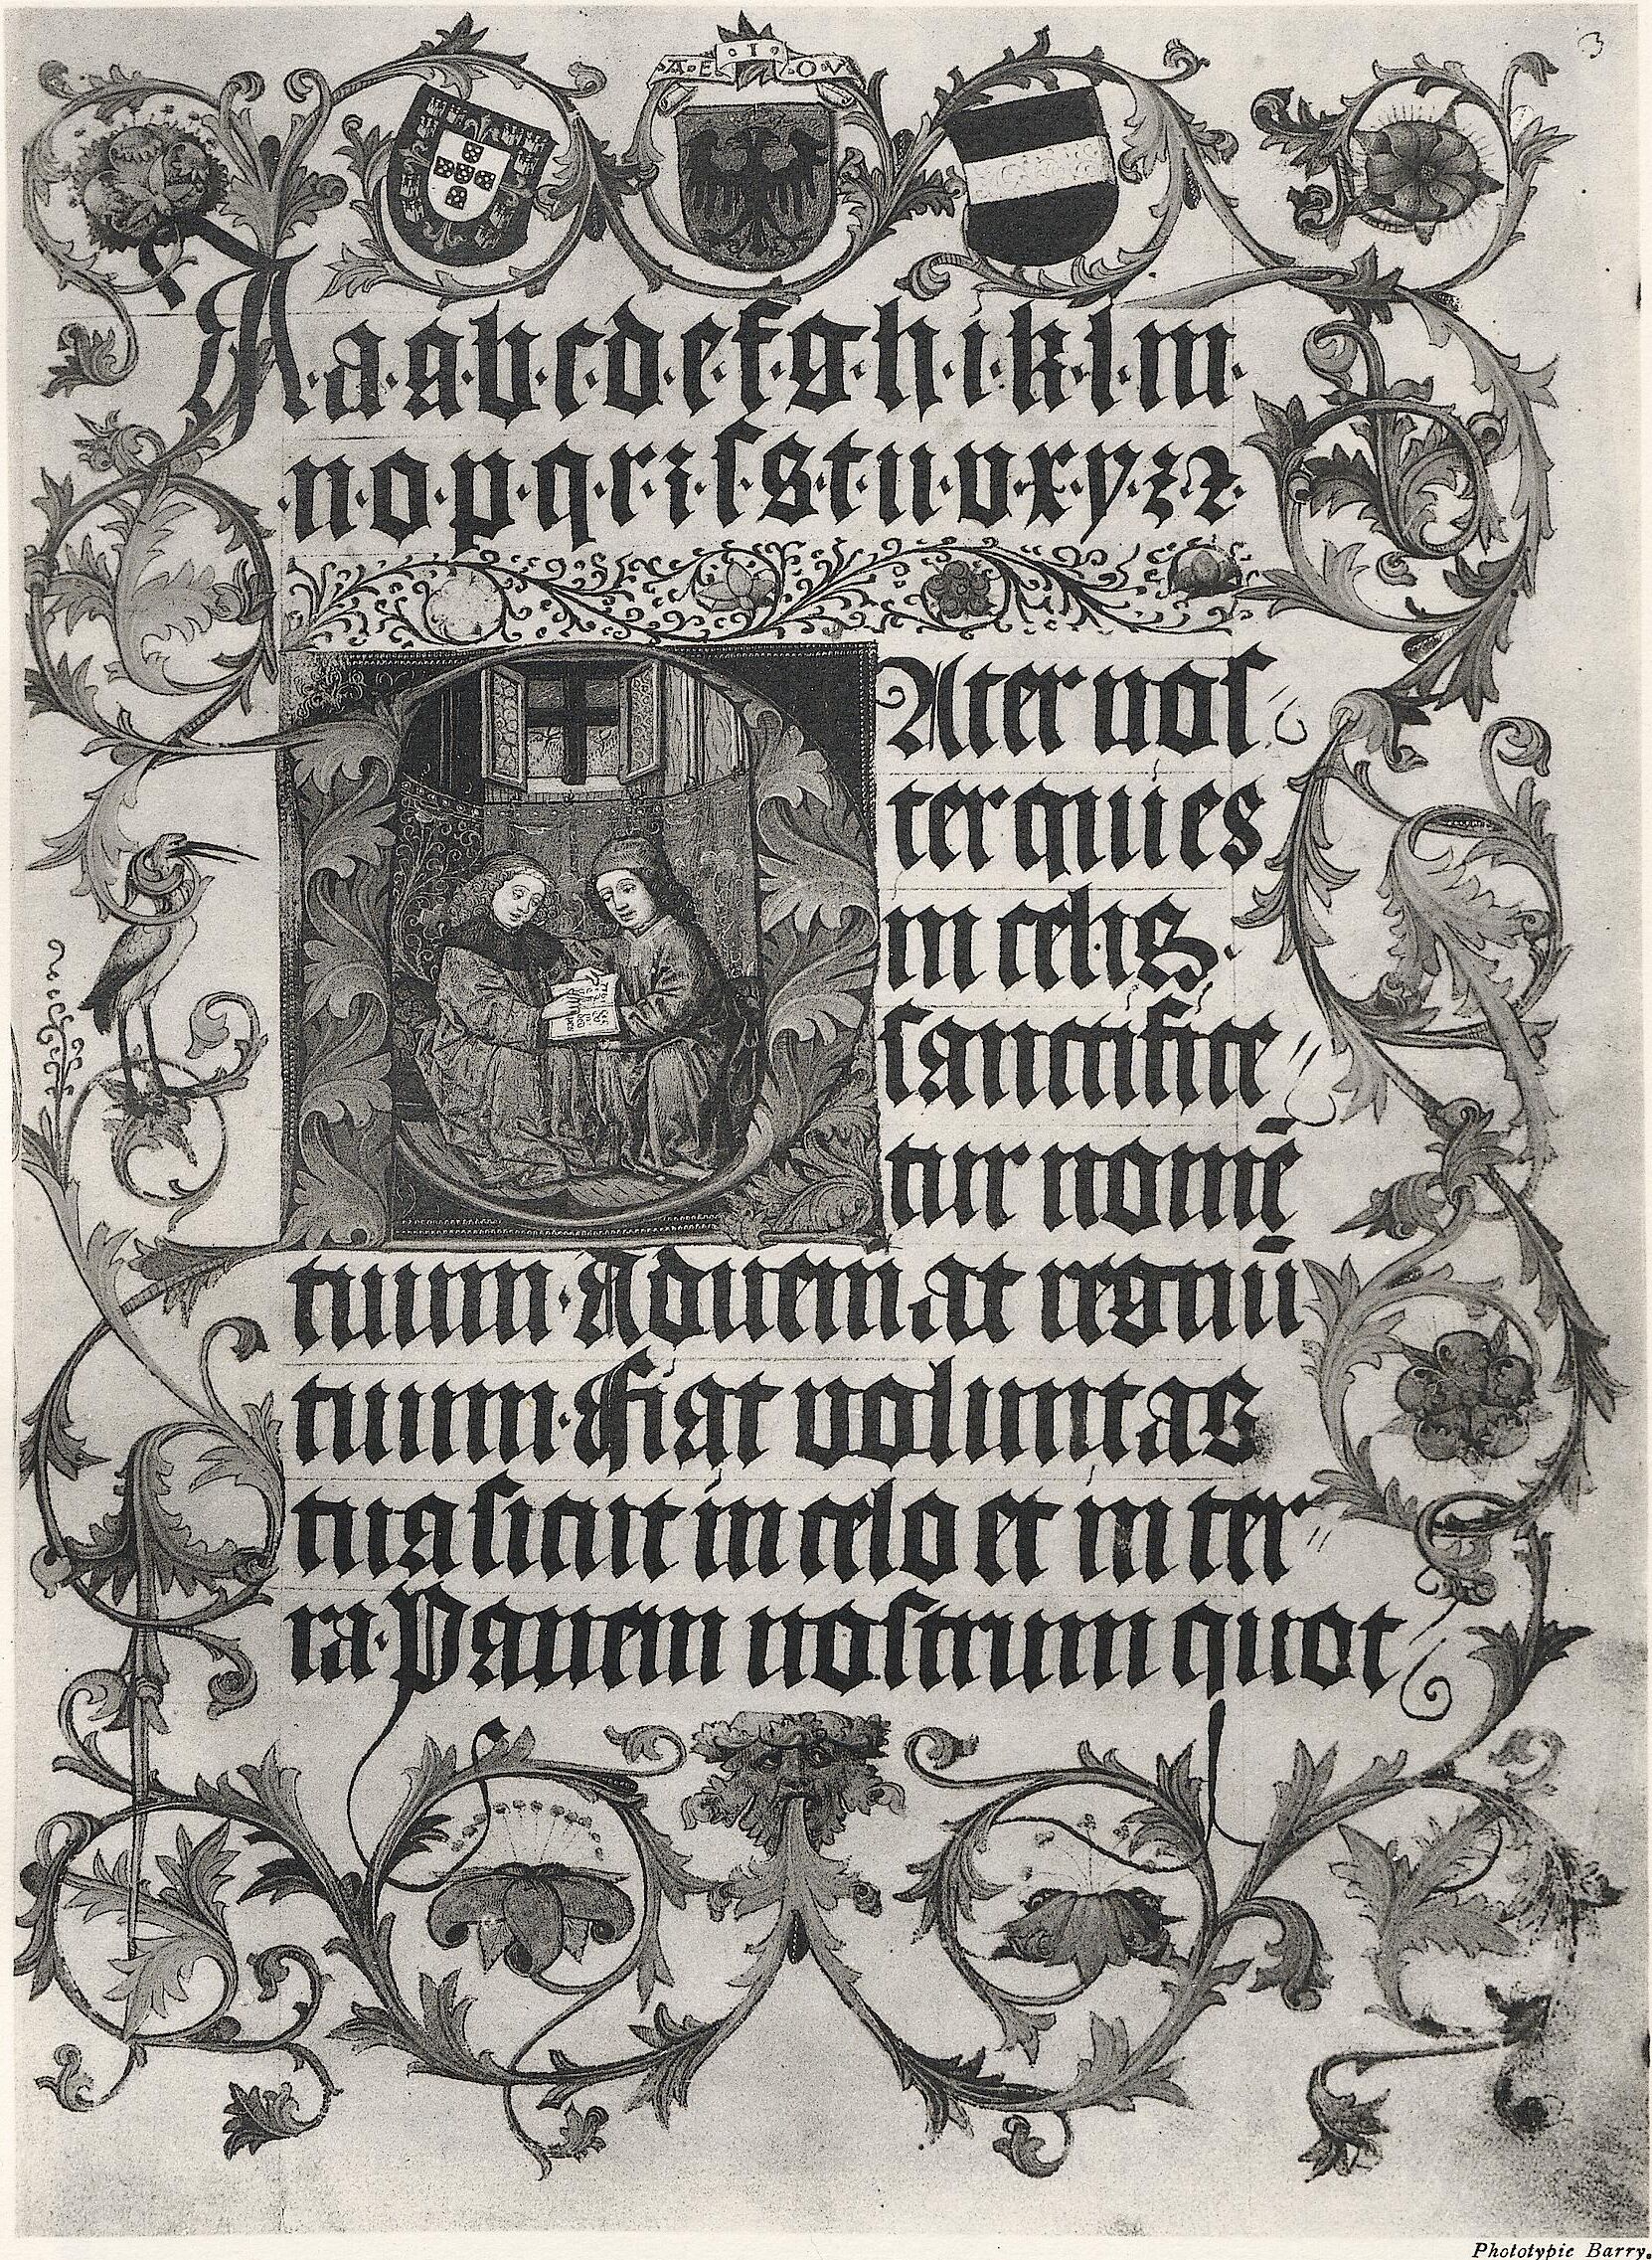 3
A·E·I·O·V
A·a·a·b·c·d·e·f·g·h·i·k·l·m·
·n·o·p·q·r·ꝛ·ſ·s·t·u·v·x·y·z·ꝛ·
PAter noſ
ter qui es
in celis·
ſanctifice
tur nomē
tuum·Adueniat regnū
tuum·Fiat voluntas
tua ſicut in celo et in ter
ra·Panem noſtrum quot
Phototypie Barry.